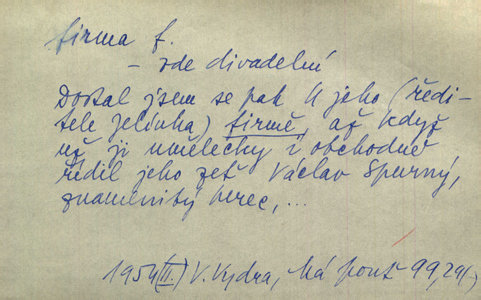 firma f.
– zde divadelní
Dostal jsem se pak k jeho (ředi-
tele Jelínka) firmě, až když
už ji umělecky i obchodně
řídil jeho zeť Václav Spurný,
znamenitý herec, ...
1954 (II.) V. Vydra, Má pouť 99,29